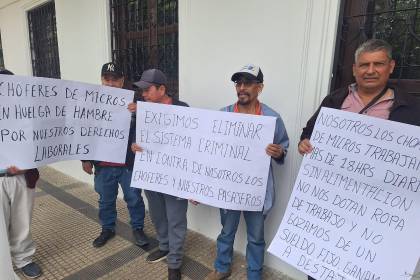 CHOFERES DE MICROS
EN HUELGA DE HAMBRE
POR NUESTROS DERECHOS
LABORALES
EXIGIMOS ELIMINAR
EL SISTEMA CRIMINAL
EN CONTRA DE NOSOTROS LOS
CHOFERES Y NUESTROS PASAJEROS
NOSOTROS LOS
DE MICROS TRABAJA
MAS DE 18HRS DIARI
SIN ALIMENTACION
NO NOS DOTAN ROPA
DE TRABAJO Y NO
GOZAMOS DE UN
SUELDO FIJO GANAM
A DESTA